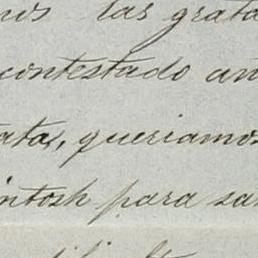 nos las grata
contestado an
rata, queriamos
intosh para sa